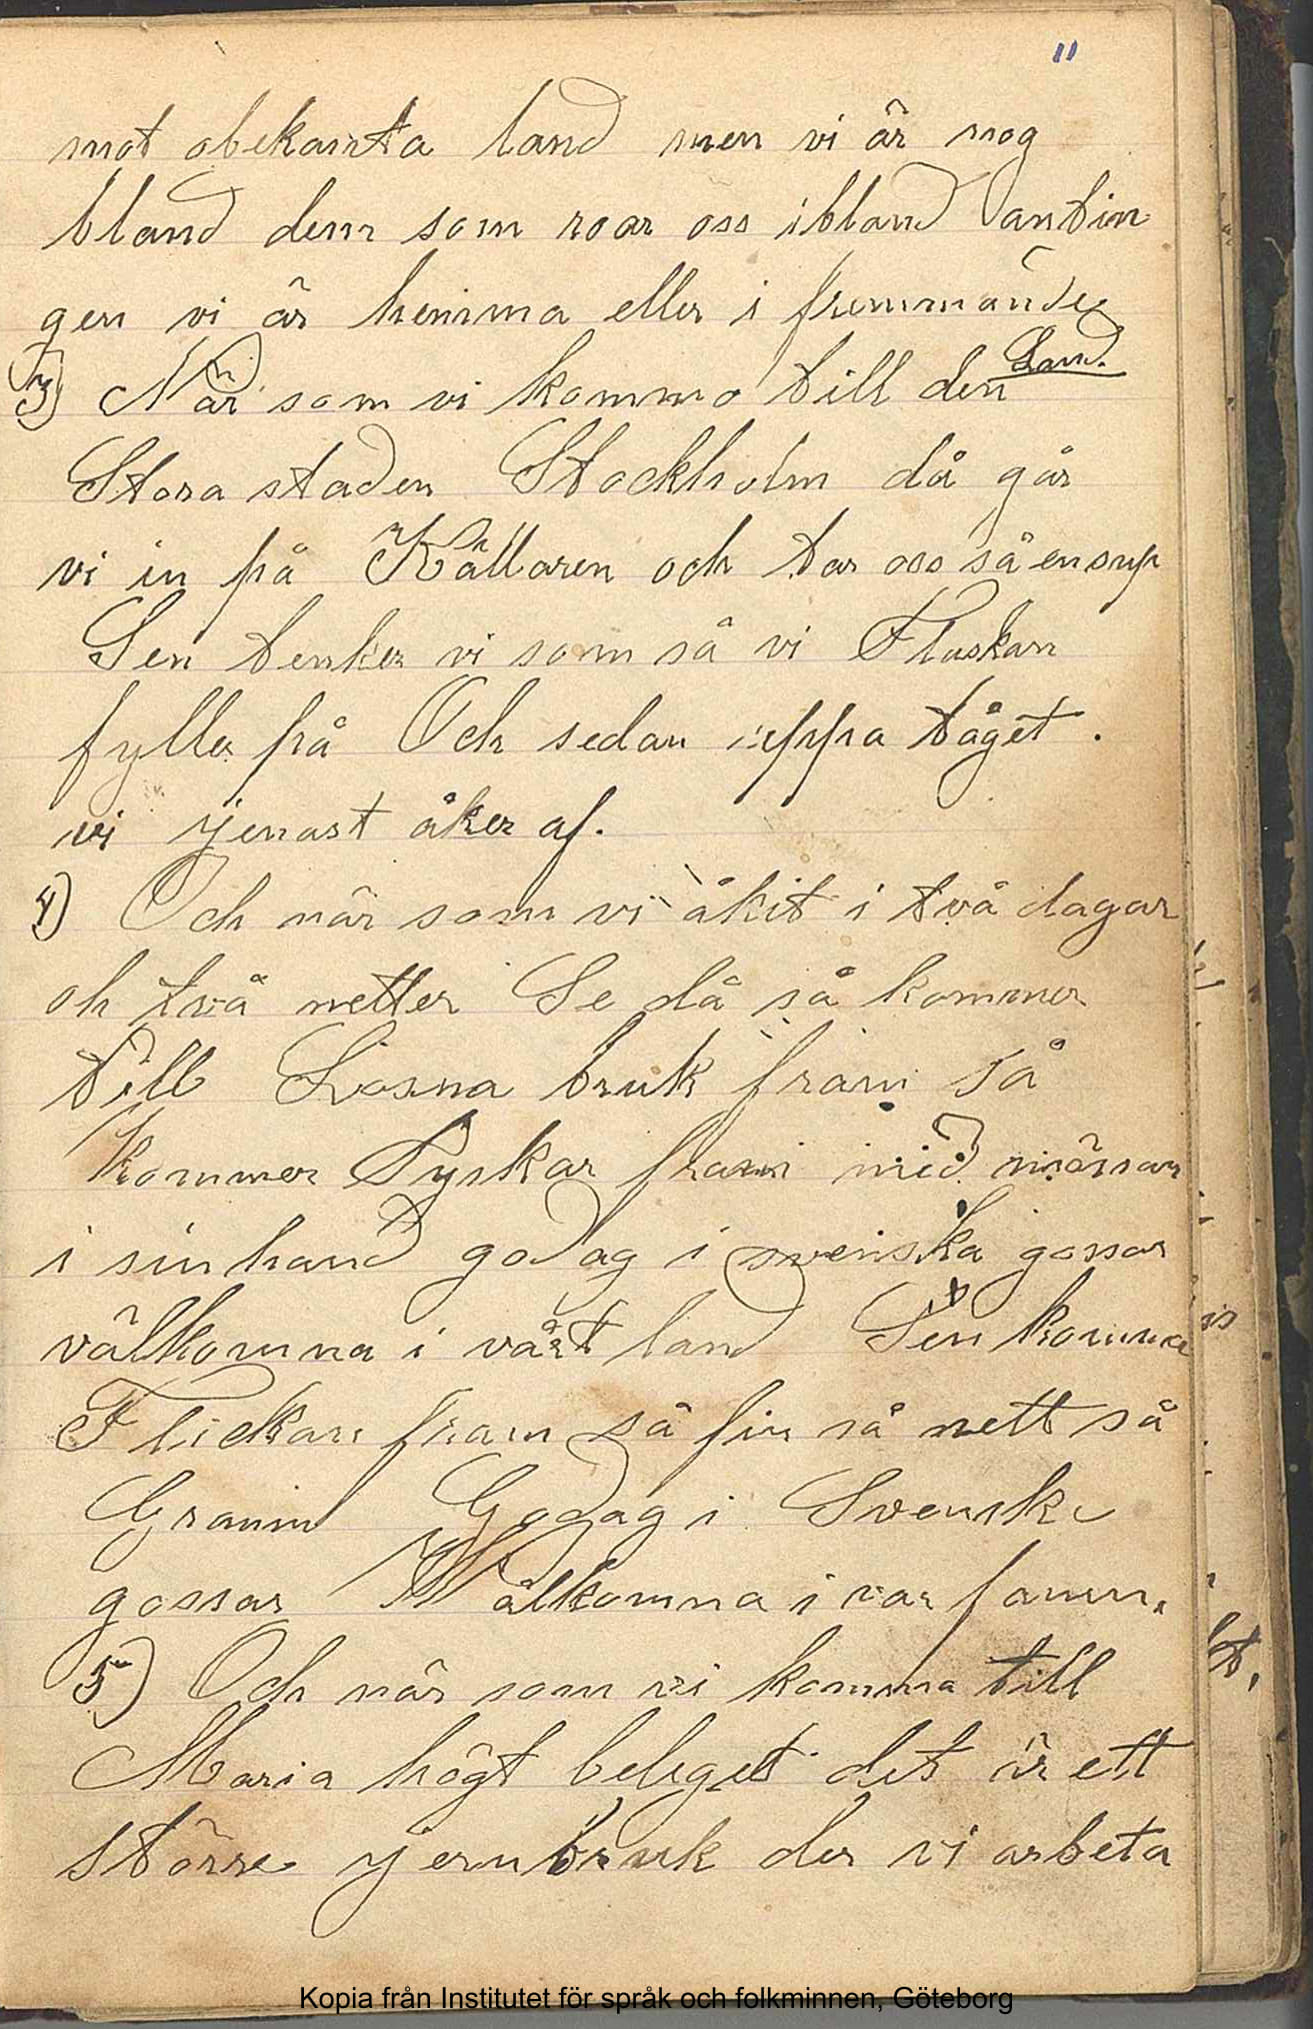 11
mot obekanta land men vi är nog
bland dem som roar oss ibland antin
gen vi är hemma eller i fremmande
Land.
3) När som vi kommo till den
Stora staden Stockholm då går
vi in på Källaren och tar oss så en sup
Sen tenker vi som så vi Flaskan
fyller på Och sedan uppa tåget.
vi jenast åker af.
4) Och när som vi åkit i två dagar
oh två netter Se då så kommer
till Liosna bruk fram så
kommer Tyskar fram med mössan
i sin hand godag i svenska gossar
välkomna i vårt land Sen komma
Flickan fram så fin så nett så
Grann Godag i Svenska
gossar Wälkomna i var famn.
5) Och när som vi komma till
Maria högt beleget det är ett
större jernbruk der vi arbeta
Kopia från Institutet för språk och folkminnen, Göteborg